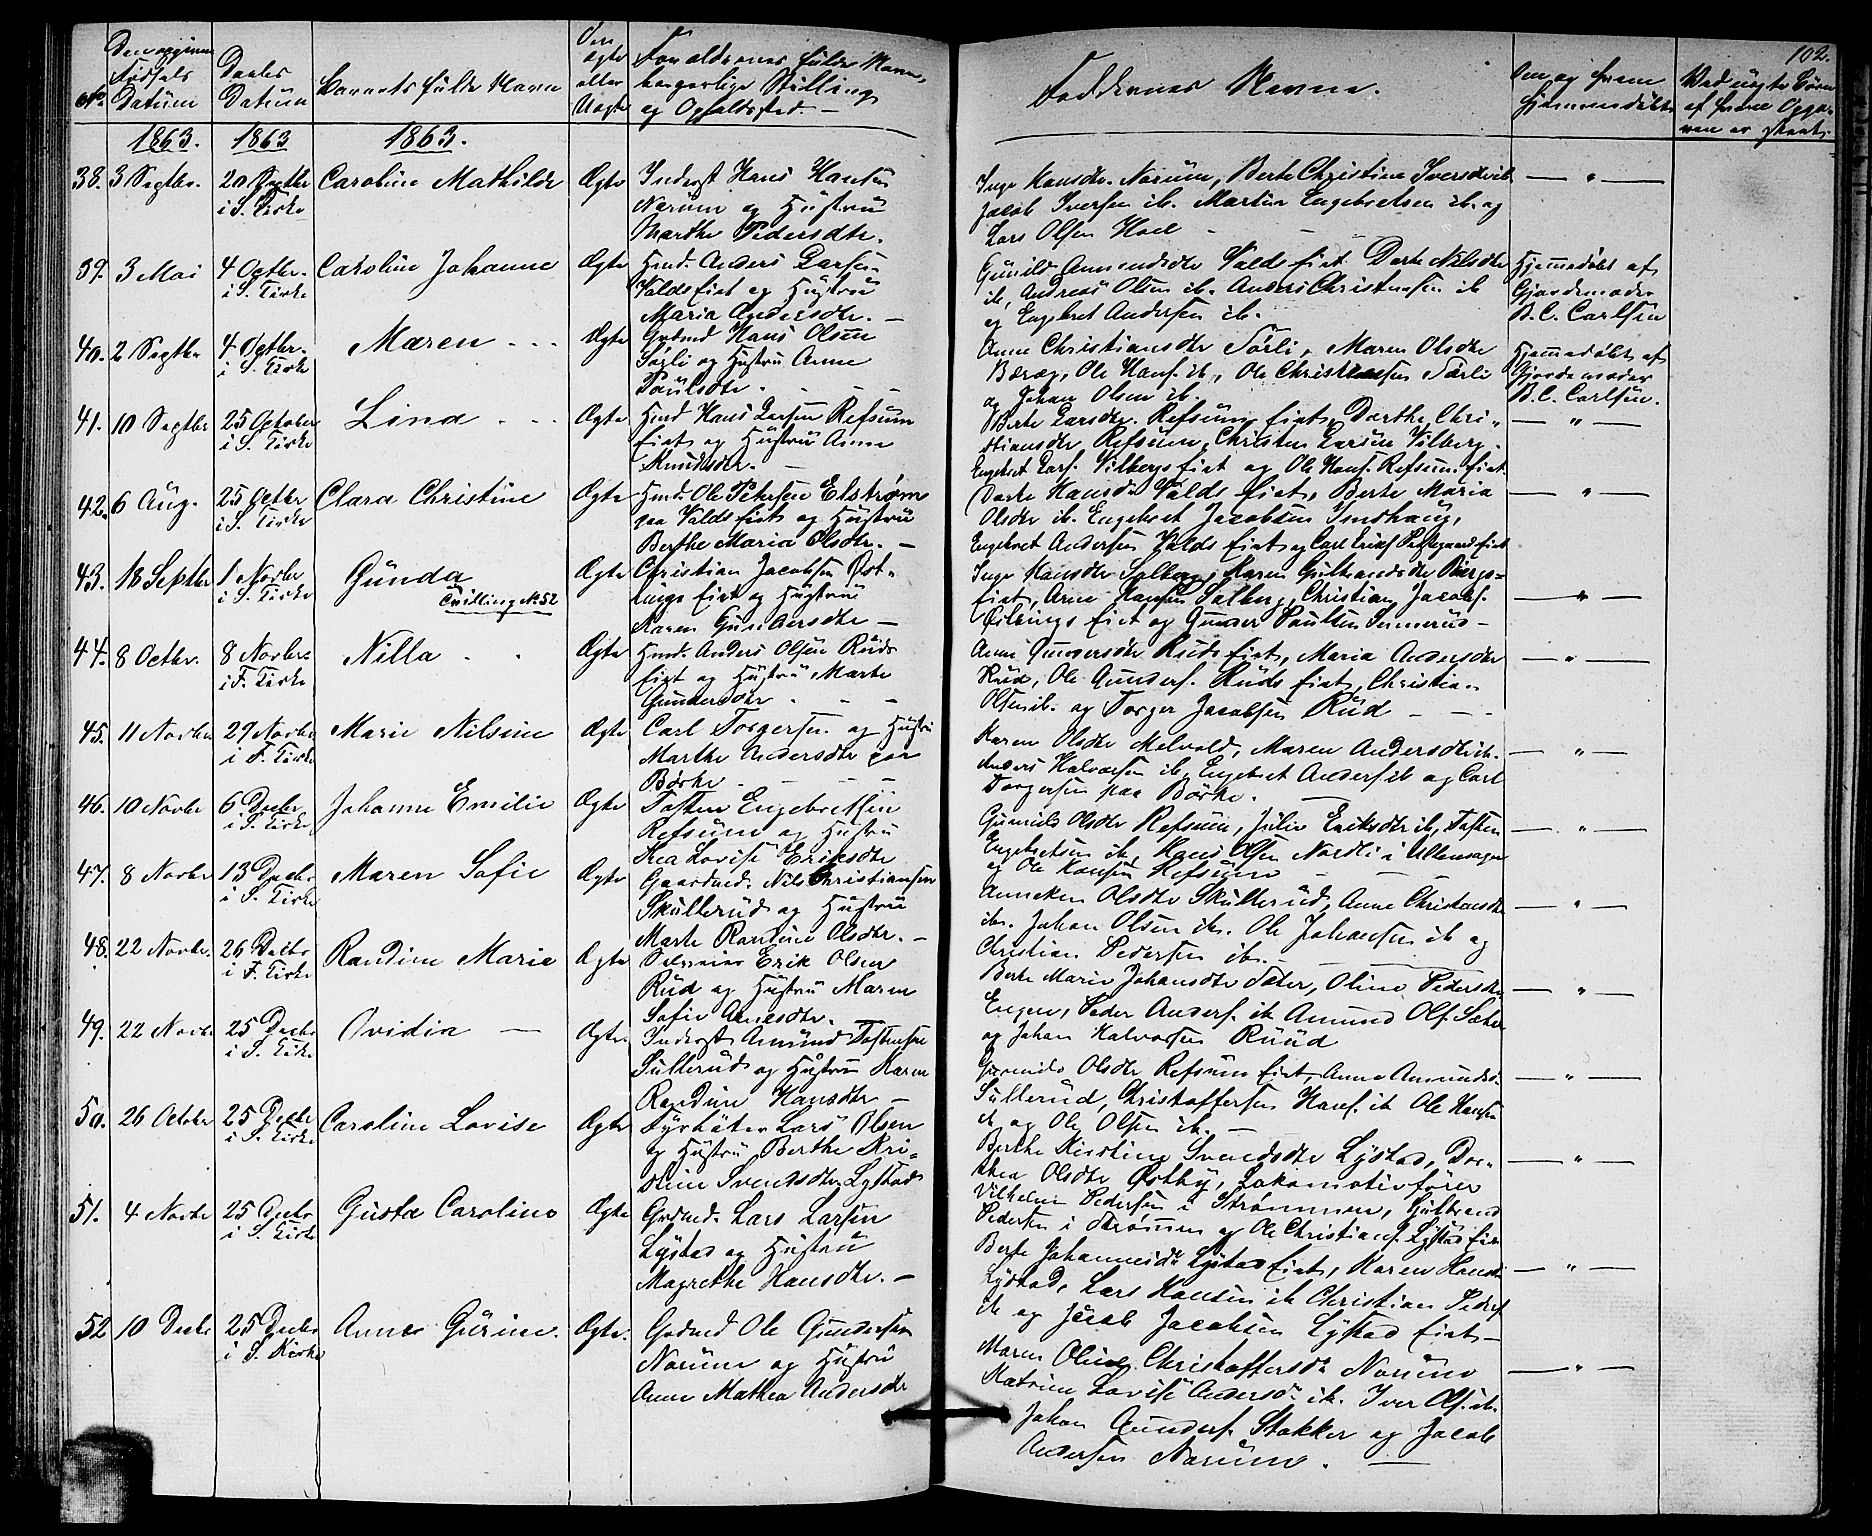 102.
No.
Den opgivne Fødsels Datum
Daabs Datum
Barnets fulde Navn
Om ægte eller Uægte
Forældrenes fulde Navn, borgerlige Stilling og Opholdssted. —
Faddernes Navne.
Om og hvem hjemmedøbt
Ved uægte Børn af hvem Opga-
ven er skeet.
1863. 1863 1863.
38. 3 Septbr. 20 Septbr i S. Kirke Caroline Mathilde Ægte
Inderst Hans Hansen
Norum og Hustru
Marthe Pedersdtr.
Inge Hansdtr. Norum, Berte Christine Iversdtr ib
Jacob Iversen ib. Martin Engebretsen ib. og
Lars Olsen Hoel
— " —
39. 3 Mai 4 Octbr. i S. Kirke Caroline Johanne Ægte
Hmd. Anders Larsen
Valds Eiet og Hustru
Maria Andersdtr. —
Gunild Amundsdtr Valds Eiet Dorte Nilsdtr
ib, Andreas Olsen ib. Anders Christensen ib
og Engebret Andersen ib.
Hjemmedøbt af
Gjordemoder
B. C. Carlsen
40. 2 Septbr 4 Octbr. i S. Kirke Maren Ægte
Grdmd Hans Olsen
Sørli og Hustru Anne
Paulsdtr
Anne Christiansdtr Sørli, Maren Olsdtr
Ole Hans. ib, Ole Christensen Sørli
og Johan Olsen ib.
Hjemmedøbt af
Gjordemoder
B. C. Carlsen.
41. 10 Septbr 25 October i S. Kirke Lina Ægte
Hmd Hans Larsen Refsum
Eiet og Hustru Anne
Knudsdtr. —
Berte Larsdtr. Refsum Eiet, Dorthe Chri-
stiansdtr Refsum, Christen Larsen Vilberg.
Engebret Lars. Vilbergs Eiet og Ole Hans. Refsum Eiet
— " —
42. 6 Aug. 25 Octbr i S. Kirke Clara Christine Ægte
Hmd. Ole Petersen Elstrøm
paa Valds Eiet og Hustru
Berthe Maria Olsdtr. —
Dorte Hansdtr Valds Eiet, Berte Maria
Olsdtr ib. Engebret Jacobsen
Engebret Andersen Valds Eiet og Carl Eriks.
— " —
43. 18 Septbr 1 Novbr i S. Kirke Gunda Ægte
Tvilling No 52
Christian Jacobsen Øst-
Eiet og Hustru
Karen Gundersdtr —
Inge Hansdtr Solberg, Maren Gulbrandsdtr
Eiet, Arne Hansen Solberg, Christian Jacobs.
Eiet og Gunder Paulsen
— " —
44. 8 Octbr. 8 Novbr i F. Kirke Nilla Ægte
Hmd. Anders Olsen Ruds
Eiet og Hustru Marte
Gundersdtr
Anne Gundersdtr Ruds Eiet, Maria Andersdtr
Rud, Ole Gunders. Ruds Eiet, Christian
Olsen ib. og Torger Jacobsen Rud
— " —
45. 11 Novbr 29 Novbr i F. Kirke Marie Nilsine Ægte
Carl Torgersen og Hustru
Marthe Andersdtr paa
Børke
Karen Olsdtr Melvold, Maren Andersdtr ib.
Anders Halvorsen ib, Engebret Anders. ib og Carl
Torgersen paa Børke.
— " —
46. 10 Novbr 6 Decbr. i S. Kirke Johanne Emilie Ægte
Tosten Engebretsen
Refsum og Hustru
Thea Lovise Eriksdtr
Gunnild Olsdtr Refsum, Julie Eriksdtr ib, Tosten
Engebretsen ib, Hans Olsen Nordli i Ullensager
og Ole Hansen Refsum
— " —
47. 8 Novbr 13 Decbr i S. Kirke Maren Sofie Ægte
Gaardmd. Nils Christiansen
Skullerud og Hustru
Marte Randine Olsdtr. —
Anneken Olsdtr Skullerud, Anne Christensdtr
ib. Johan Olsen ib. Ole Johansen ib og
Christian Pedersen ib.
— " —
48. 22 Novbr. 26 Decbr i F. Kirke Randine Marie Ægte
Selveier Erik Olsen
Rud og Hustru Maren
Sofie Arnesdtr.
Berte Marie Johansdtr Sæter, Oline Pedersdtr
Engen, Peder Anders. ib Amund Ols. Sæter
og Johan Halvorsen Ruud
— " —
49. 22 Novbr 25 Decbr i S. Kirke Ovidia — Ægte.
Inderst Amund Tostensen
Sullerud og Hustru Karen
Randine Hansdtr —
Gunnild Olsdtr Refsum Eiet, Anne Amundsd.
Sullerud, Christoffersen Hans. ib Ole Hansen
ib og Ole Olsen ib. —
— " —
50. 26 October 25 Decbr i S. Kirke Caroline Lovise Ægte
Fyrbøter Lars Olsen
og Hustru Berthe Kri-
stine Svendsdtr Lystad
Berthe Kirstine Svendsdtr Lystad, Dor-
thea Olsdtr Østby, Lokomotivfører
Vilhelm Pedersen i Strømmen, Gulbrand
Pedersen i Strømmen og Ole Christians. Lystad Eie
— " —
51. 4 Novbr 25 Decbr i S. Kirke Gusta Caroline Ægte
Grdmd. Lars Larsen
Lystad og Hustru
Magrethe Hansdtr. —
Berte Johannesdtr Lystad Eiet, Karen Hansdtr
Lystad, Lars Hansen ib Christian Peders.
ib og Jacob Jacobsen Lystad Eiet —
— " —
52 10 Decbr 25 Decbr i S. Kirke Anne Gurine. Ægte.
Grdmd Ole Gundersen
Norum og Hustru
Anne Mathea Andersdtr
Maren Oline Christoffersdtr Norum
Katrine Lovise Andersdtr ib. Iver Ols. ib.
Johan Gunders. Stakker og Jacob
Andersen Norum. —
— " —